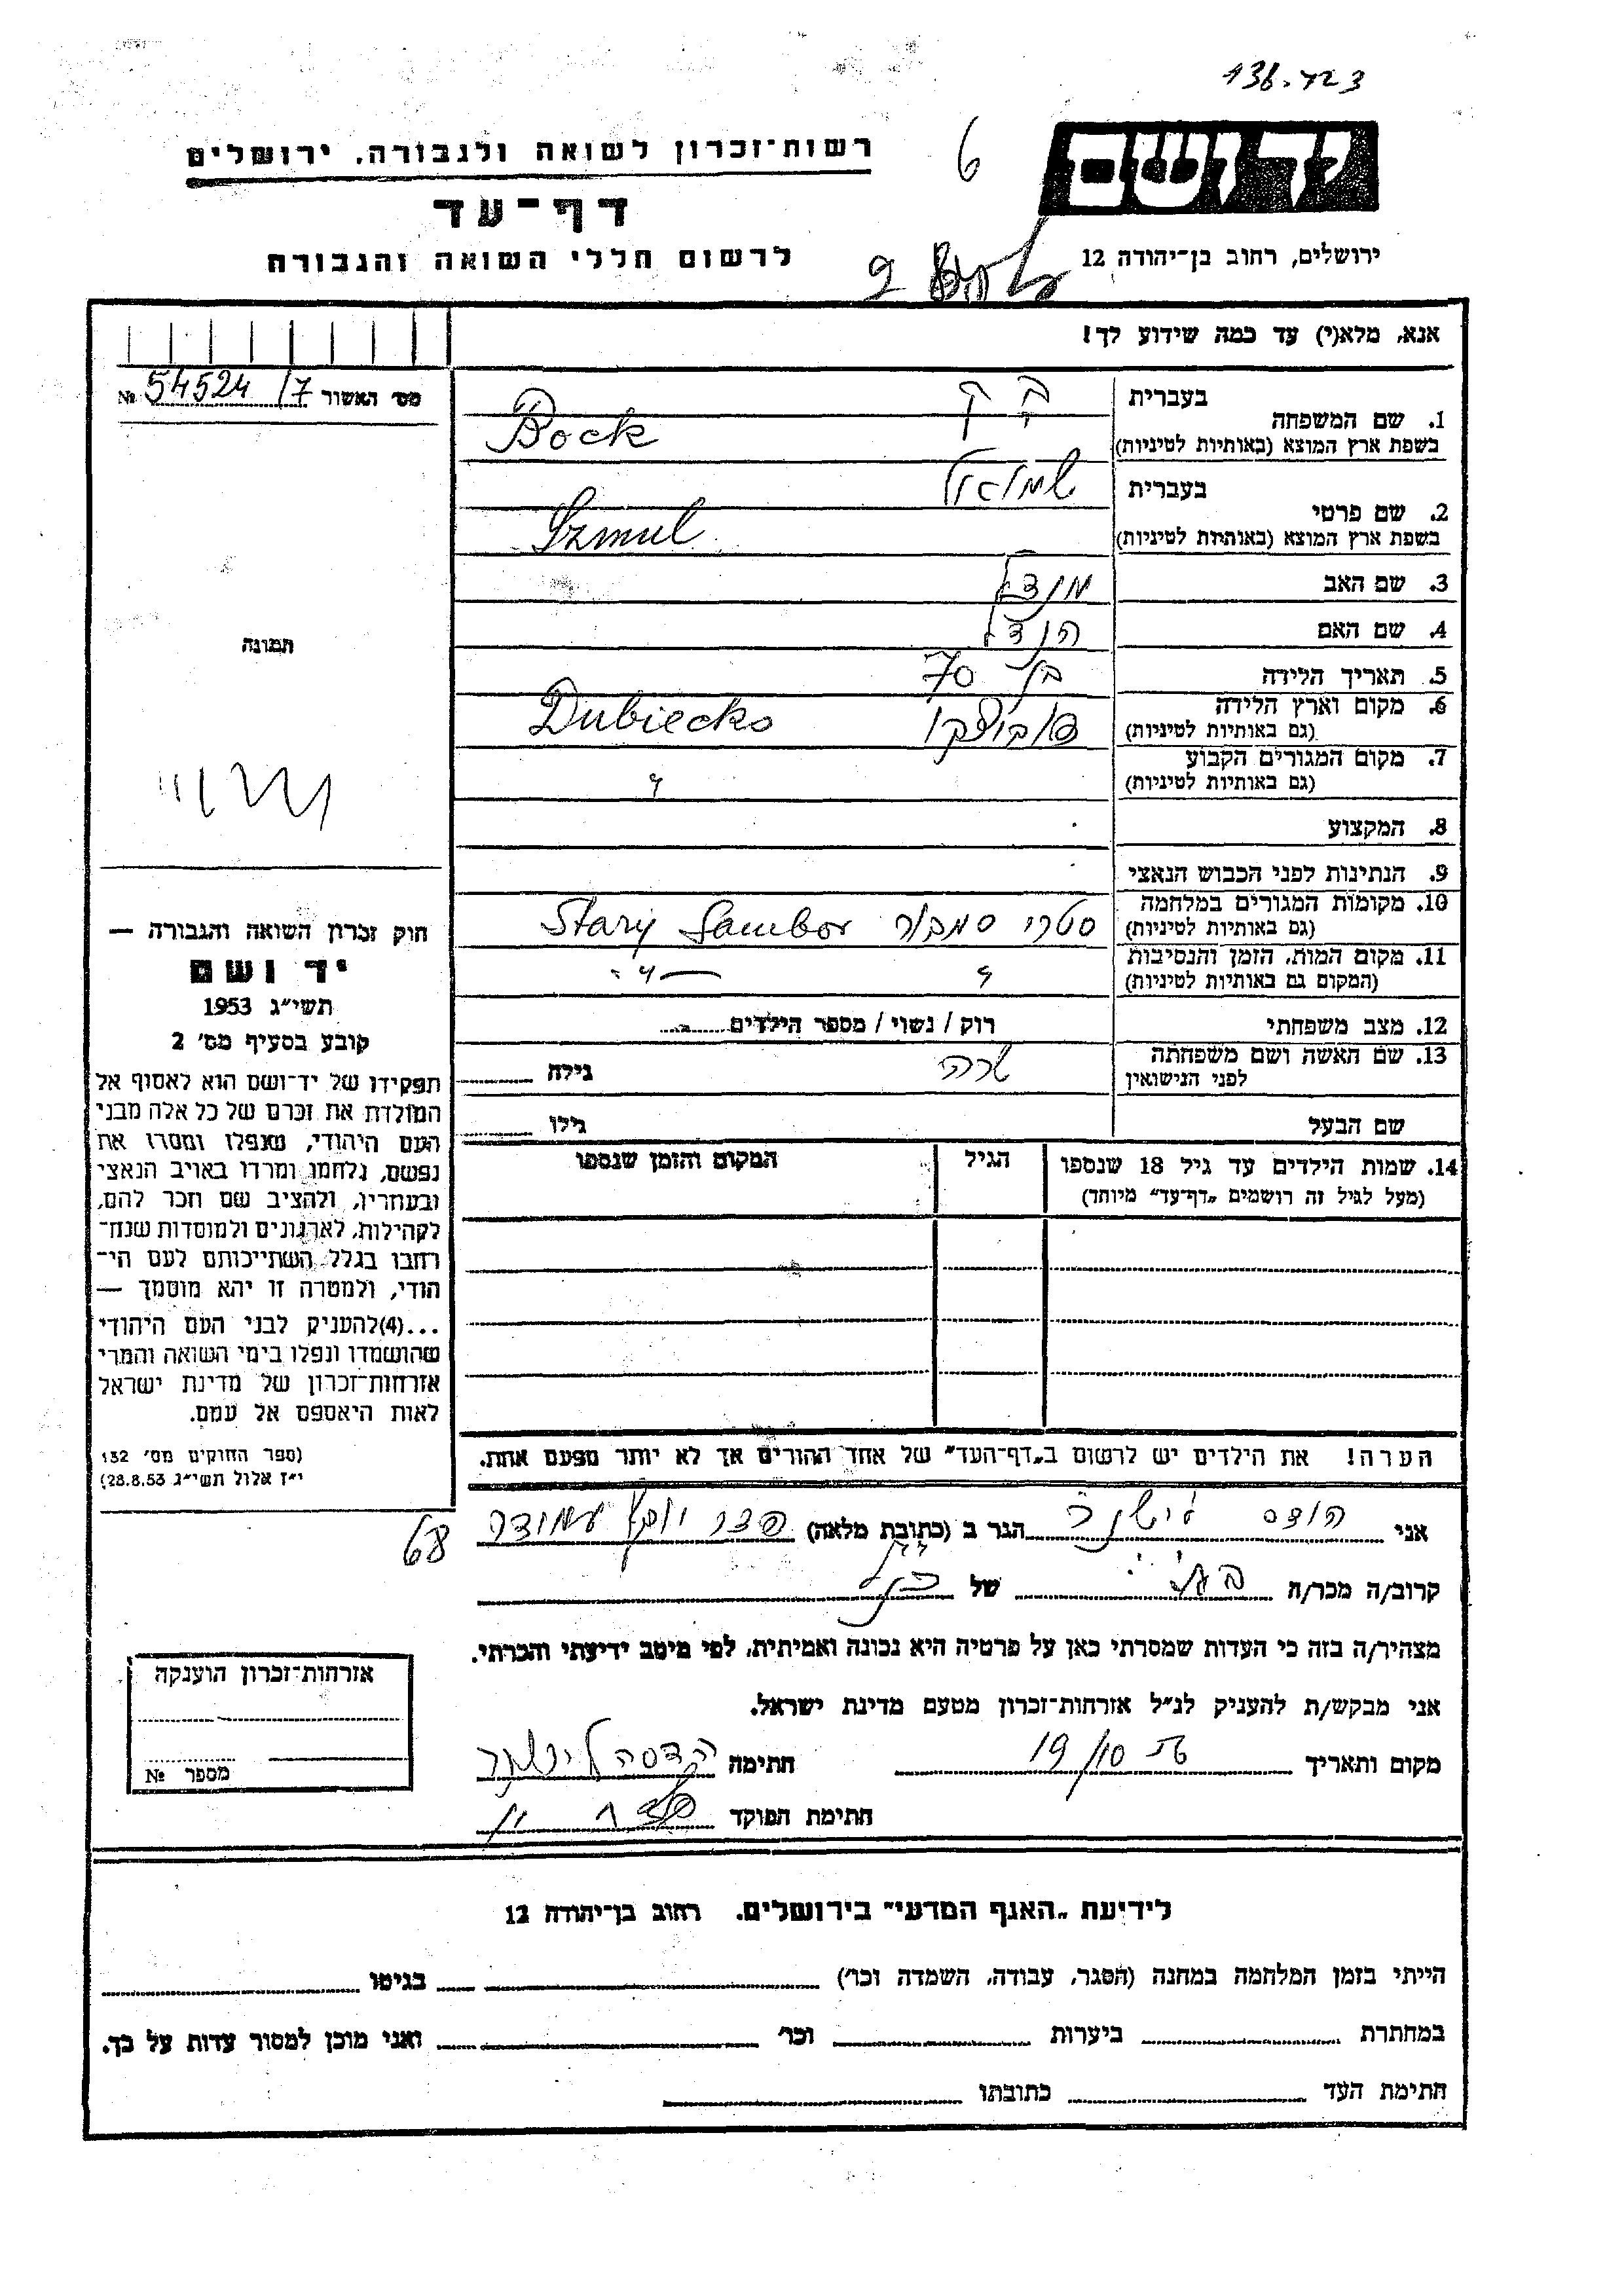 136-423
יד ושם
רשות-זכרון לשואה ולגבורה, ירושלים
6
דף-עד
ירושלים, רחוב בן-יהודה 12
לרשום חללי השואה והגבורה
אנא, מלא(י) עד כמה שידוע לך!
מס׳ האשור 54524/7 №
תמונה
בעברית
בק
1. שם המשפחה
בשפת ארץ המוצא (באותיות לטיניות)
Bock
בעברית
שמואל
2. שם פרטי
בשפת ארץ המוצא (באותיות לטיניות)
Szmul
3. שם האב מנדל
4. שם האם הנדל
5. תאריך הלידה בן 70
6. מקום וארץ הלידה
(גם באותיות לטיניות)
דוביצקו Dubiecko
7. מקום המגורים הקבוע
(גם באותיות לטיניות)
"
8. המקצוע
9. הנתינות לפני הכבוש הנאצי
10. מקומות המגורים במלחמה
(גם באותיות לטיניות)
סטרי סמבור Stary Sambor
11. מקום המות, הזמן והנסיבות
(המקום גם באותיות לטיניות)
" — " —
12. מצב משפחתי רוק / נשוי / מספר הילדים
13. שם האשה ושם משפחתה
לפני הנישואין
שרה גילה
שם הבעל גילו
14. שמות הילדים עד גיל 18 שנספו
(מעל לגיל זה רושמים „דף-עד״ מיוחד)
הגיל
המקום והזמן שנספו
הערה! את הילדים יש לרשום ב„דף-העד״ של אחד ההורים אך לא יותר מפעם אחת.
חוק זכרון השואה והגבורה —
יד ושם
תשי״ג 1953
קובע בסעיף מס׳ 2
תפקידו של יד-ושם הוא לאסוף אל
המולדת את זכרם של כל אלה מבני
העם היהודי, שנפלו ומסרו את
נפשם, נלחמו ומרדו באויב הנאצי
ובעוזריו, ולהציב שם וזכר להם,
לקהילות, לארגונים ולמוסדות שנח-
רבו בגלל השתייכותם לעם הי-
הודי, ולמטרה זו יהא מוסמך —
...(4) להעניק לבני העם היהודי
שהושמדו ונפלו בימי השואה והמרי
אזרחות-זכרון של מדינת ישראל
לאות היאספם אל עמם.
(ספר החוקים מס׳ 132
י״ז אלול תשי״ג 28.8.53)
אני הודס הגר ב (כתובת מלאה)
68
קרוב/ה מכר/ה של
מצהיר/ה בזה כי העדות שמסרתי כאן על פרטיה היא נכונה ואמיתית, לפי מיטב ידיעתי והכרתי.
אני מבקש/ת להעניק לנ״ל אזרחות-זכרון מטעם מדינת ישראל.
מקום ותאריך 19/10 חתימה
חתימת הפוקד
אזרחות-זכרון הוענקה
מספר №
לידיעת „האגף המדעי״ בירושלים, רחוב בן-יהודה 12
הייתי בזמן המלחמה במחנה (הסגר, עבודה, השמדה וכו׳) בגיטו
במחתרת ביערות וכו׳ ואני מוכן למסור עדות על כך.
חתימת העד כתובתו